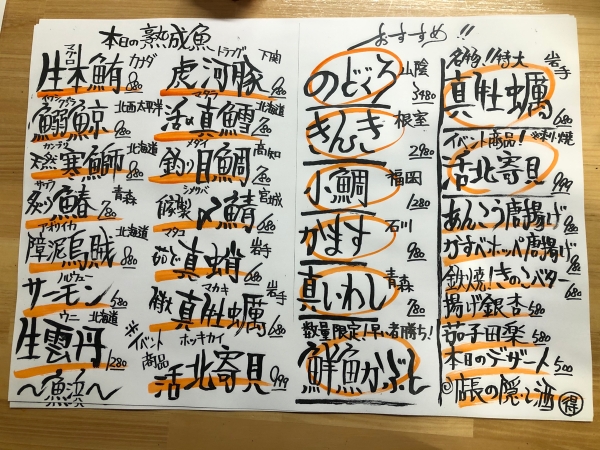 本日の熟成魚
マグロ
生本鮪 カナダ 980
イワシクジラ
鰯鯨 北西太平洋 980
カンブリ
天然寒鰤 北海道 980
サワラ
炙り鰆 青森 780
アオリイカ
障泥烏賊 北海道 780
ノルウェー
サーモン 580
ウニ 北海道
生雲丹 1280
〜魚浜〜
トラフグ 下関
虎河豚 980
マダラ 北海道
活〆真鱈 780
メダイ
釣り目鯛 高知 780
シメサバ
自家製〆鯖 宮城 780
マダコ
茹で真蛸 岩手 680
マカキ
特大真牡蠣 岩手 680
※イベント商品
ホッキガイ
活北寄貝 999
おすすめ!!
のどぐろ 山陰 3480
きんき 根室 2980
小鯛 福岡 1280
かます 石川 980
真いわし 青森 780
数量限定!早い者勝ち!
鮮魚かぶと
名物!!特大
真牡蠣 岩手 680
イベント商品!
活北寄貝 999
あんこう唐揚げ 980
がすべホッペ唐揚げ 780
鉄板焼!きのこバター 680
揚げ銀杏 580
茄子田楽 580
本日のデザート 500
◎店長の隠し酒 得